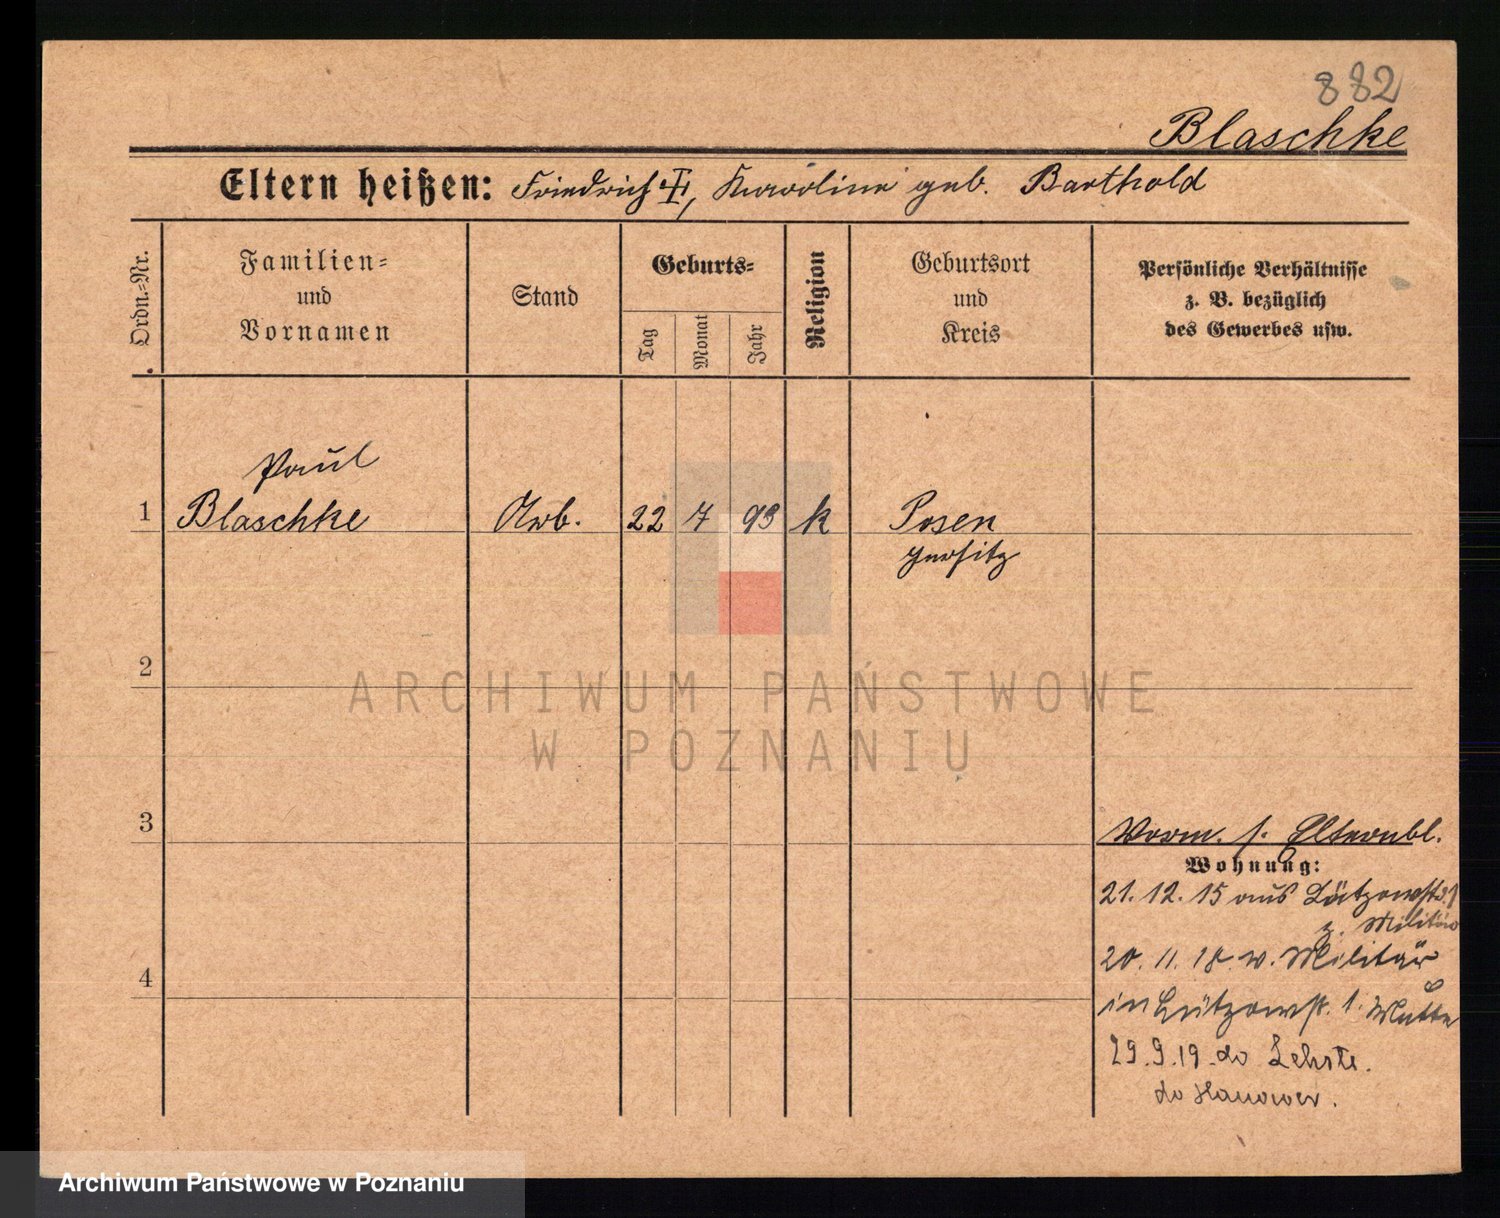 882
Blaschke
Eltern heißen: Friedrich †, Karoline geb. Barthold
Ordn.-Nr.
Familien-
und
Vornamen
Stand
Geburts-
Tag
Monat
Jahr
Religion
Geburtsort
und
Kreis
Persönliche Verhältnisse
z. B. bezüglich
des Gewerbes usw.
Paul
1 Blaschke Arb. 22 7 93 k Posen
Jersitz
2
ARCHIWUM PAŃSTWOWE
W POZNANIU
3
Vorm. s. Elternbl.
Wohnung:
21.12.15 aus Lützowstr. 1
z. Militär
20.11.18 v. Militär
4
in Lützowstr. 1. b Mutter
29.9.19 do
do Hanower.
Archiwum Państwowe w Poznaniu